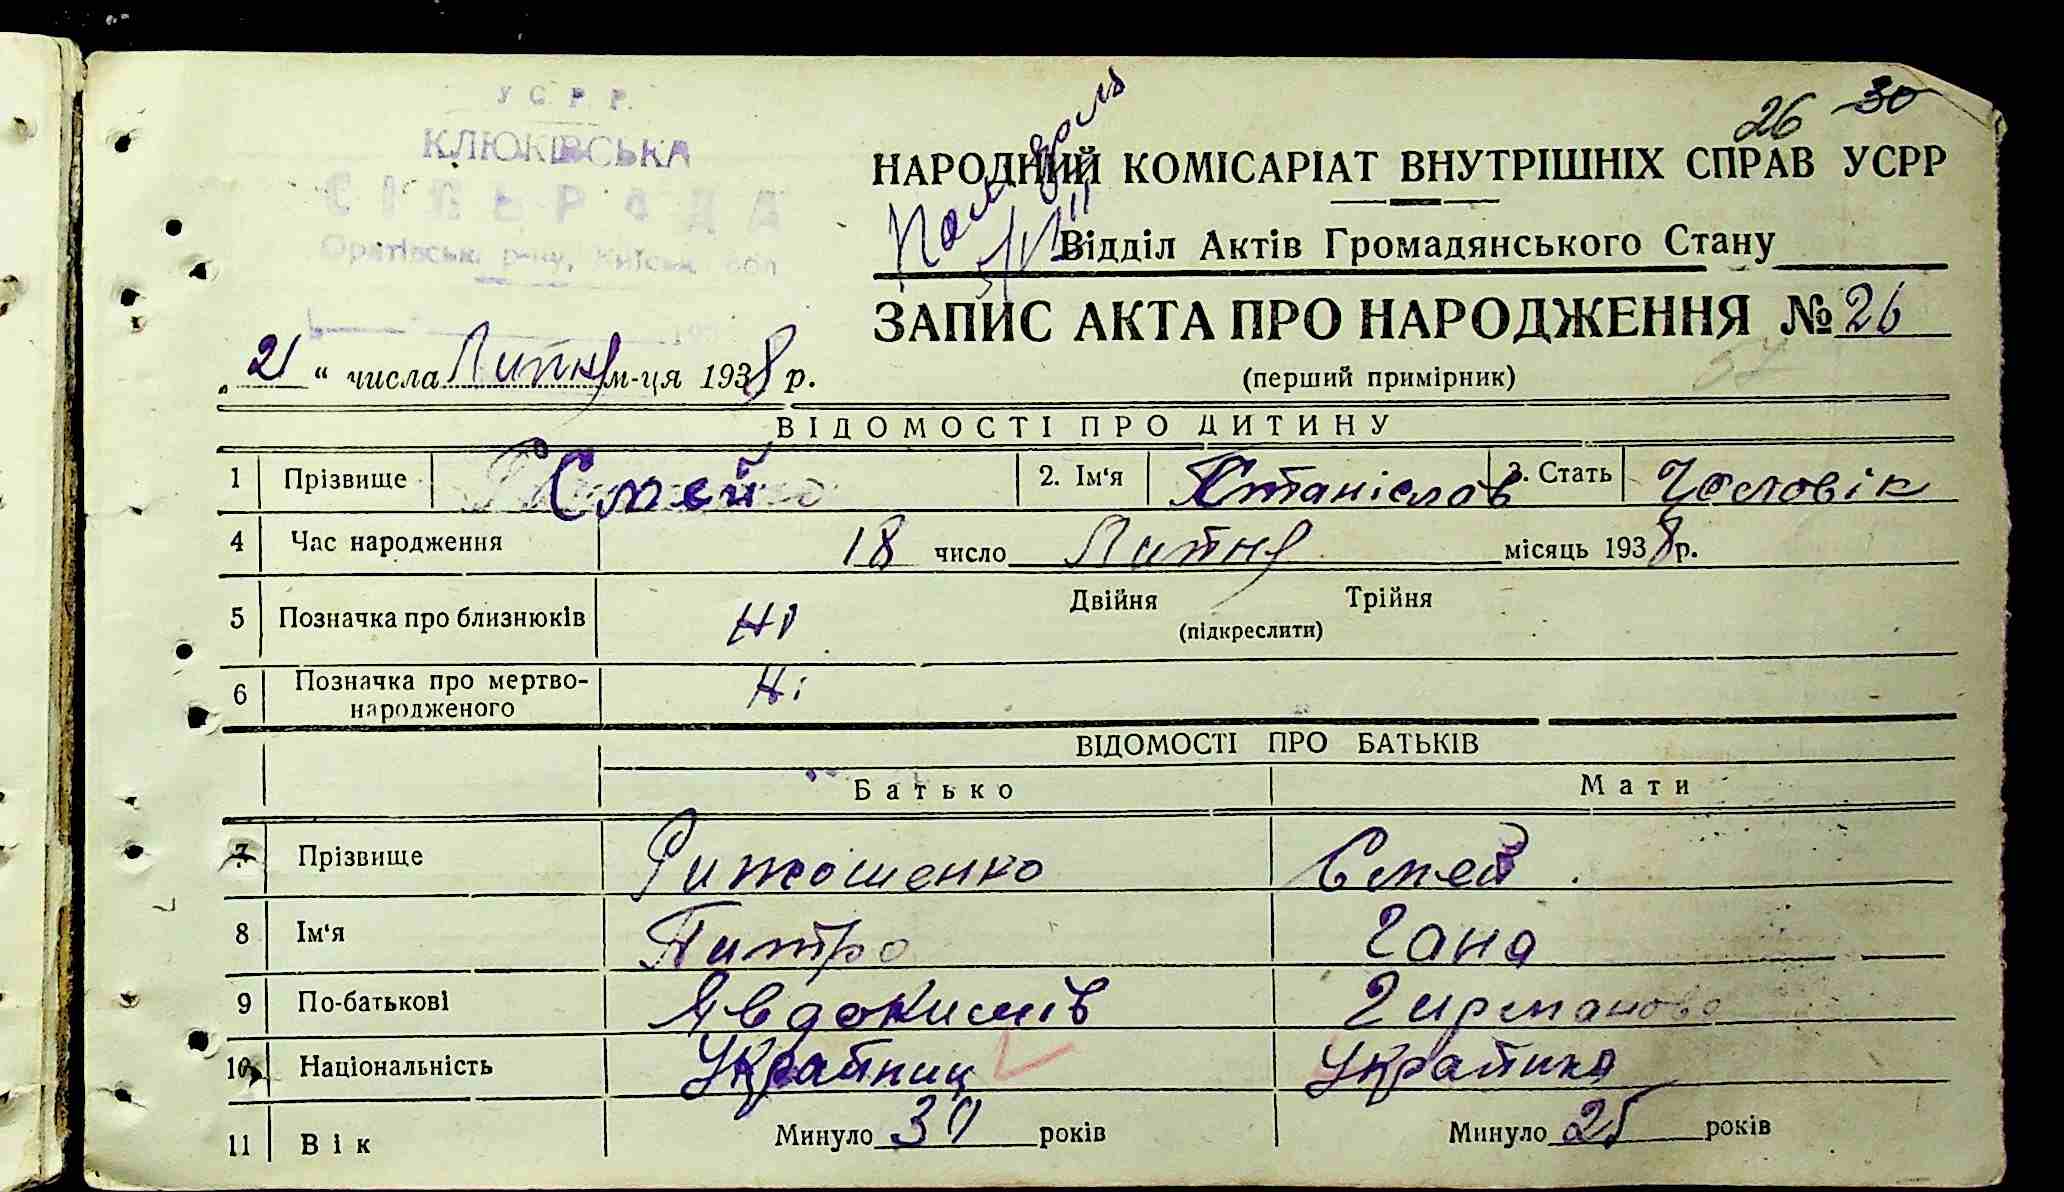 У С Р Р.
КЛЮКІВСЬКА
СІЛЬРАДА
Оратівськ. р-ну, Київськ обл
26 30
НАРОДНИЙ КОМІСАРІАТ ВНУТРІШНІХ СПРАВ УСРР
Відділ Актів Громадянського Стану
ЗАПИС АКТА ПРО НАРОДЖЕННЯ № 26
„21“ числа Липня м-ця 1938 р.
(перший примірник)
ВІДОМОСТІ ПРО ДИТИНУ
1 Прізвище Смей 2. Ім‘я Станіслав 3. Стать Чоловік
4 Час народження 18 число Липня місяць 1938 р.
5 Позначка про близнюків Ні Двійня Трійня
(підкреслити)
6 Позначка про мертво-
народженого Ні
ВІДОМОСТІ ПРО БАТЬКІВ
Батько Мати
7 Прізвище Смей
8 Ім‘я Питро Гана
9 По-батькові Явдокимів Гирманова
10 Національність Україниц Українка
11 Вік Минуло 30 років Минуло 25 років